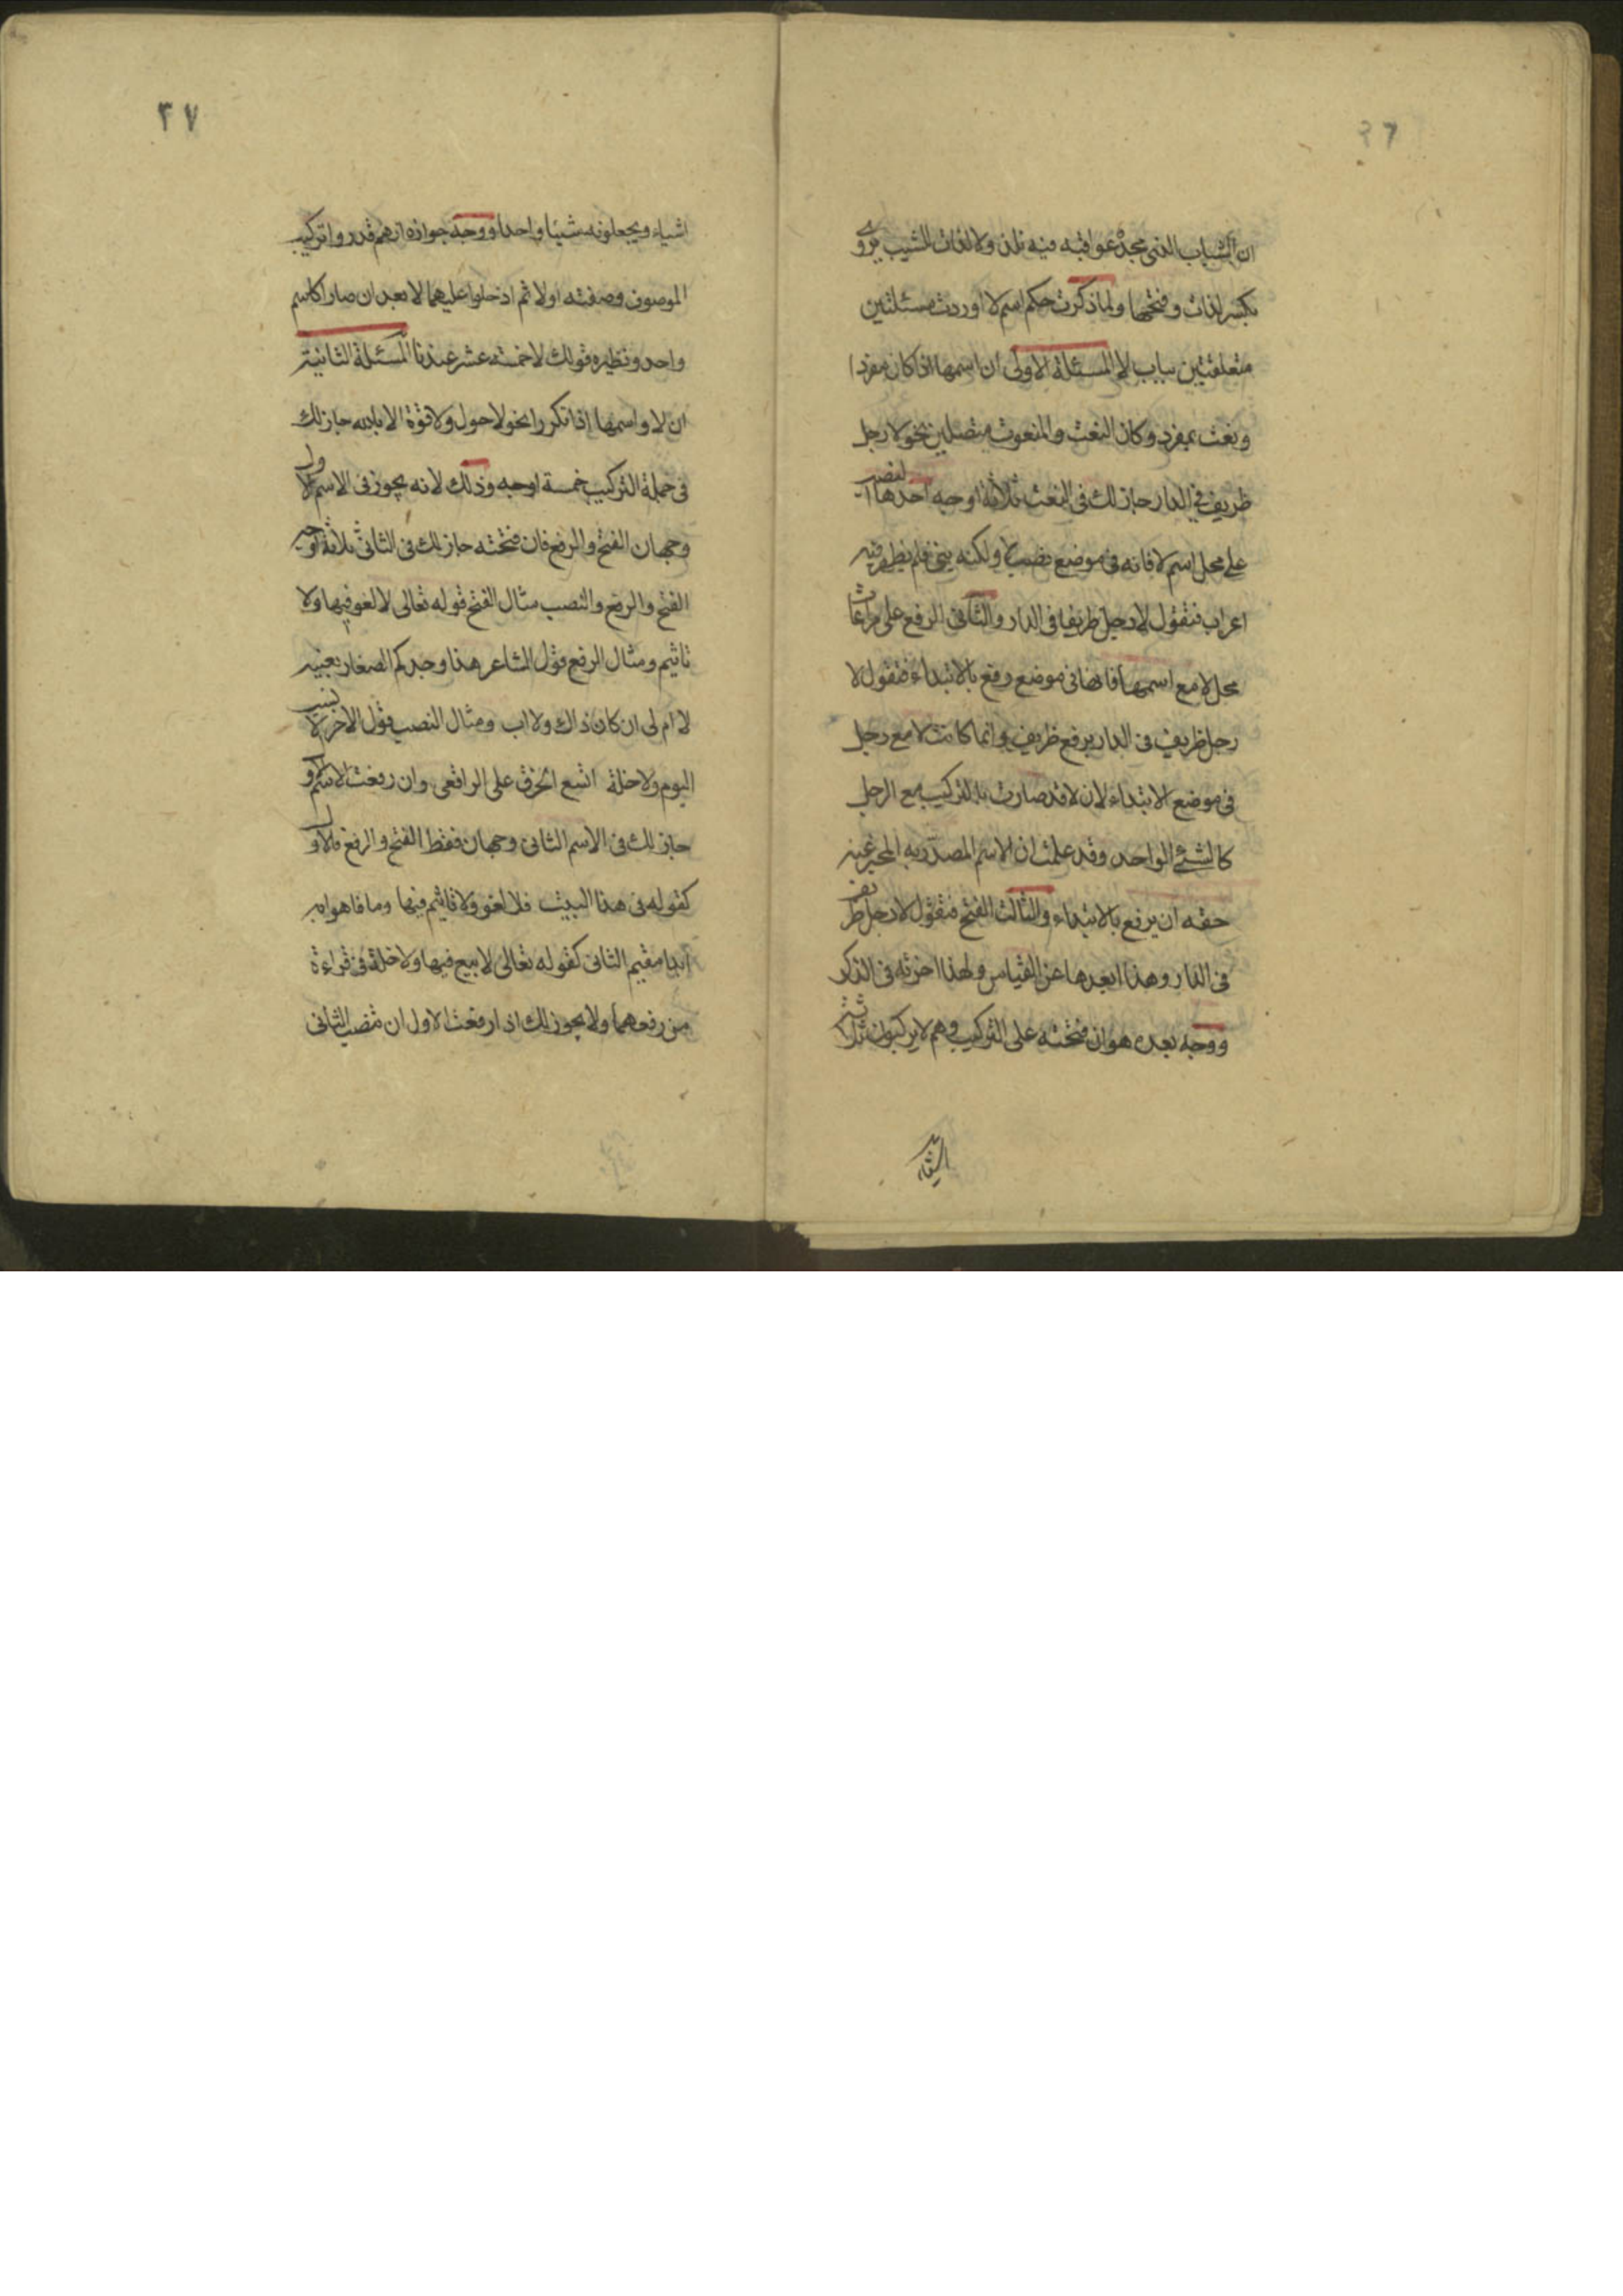 ٣٦
ان الشباب الذى مجد عواقبه فيه نلذ ولا لذات للشيب يروى
بكسر لذات وفتحها ولما ذكرت حكم اسم لا اوردت مسئلتين
متعلقتين بباب لا المسئلة الاولى ان اسمها اذا كان مفردا
ونعت بمفرد وكان النعت والمنعوت متصلين نحو لا رجل
ظريف فى الدار جاز لك فى النعت ثلاثة اوجه احدها النصب
على محل اسم لا فانه فى موضع نصب بلا ولكنه بنى فلم يظهر فيه
اعراب فتقول لا رجل ظريفا فى الدار والثانى الرفع على مراعات
محل لا مع اسمها فانهما فى موضع رفع بالابتداء فتقول لا
رجل ظريف فى الدار برفع ظريف وانما كانت لا مع رجل
فى موضع الابتداء لان لا قد صارت بالتركيب مع الرجل
كالشئ الواحد وقد علمت ان الاسم المصدر به المخبر عنه
حقه ان يرفع بالابتداء والثالث الفتح فتقول لا رجل ظريف
فى الدار وهذا ابعدها عن القياس ولهذا اخرته فى الذكر
ووجه بعده هو ان فتحته على التركيب وهم لا يركبون ثلاثة
اشياء
٣٧
اشياء ويجعلونه شيئا واحدا ووجه جوازه انهم قدروا تركيب
الموصوف وصفته اولا ثم ادخلوا عليهما لا بعد ان صارا كاسم
واحد ونظيره قولك لا خمسة عشر عندنا المسئلة الثانية
ان لا واسمها اذا تكررا نحو لا حول ولا قوة الا بالله جاز لك
فى جملة التركيب خمسة اوجه وذلك لانه يجوز فى الاسم الاول
وجهان الفتح والرفع فان فتحته جاز لك فى الثانى ثلاثة اوجه
الفتح والرفع والنصب مثال الفتح قوله تعالى لا لغو فيها ولا
تاثيم ومثال الرفع قول الشاعر هذا وجدكم الصغار بعينه
لا ام لى ان كان ذاك ولا اب ومثال النصب قول الاخر لا نسب
اليوم ولا خلة اتسع الخرق على الراقعى وان رفعت الاسم الاول
جاز لك فى الاسم الثانى وجهان فقط الفتح والرفع فالاول
كقوله فى هذا البيت فلا لغو ولا تاثيم فيها وما فاهوا به
ابدا مقيم الثانى كقوله تعالى لا بيع فيها ولا خلة فى قراءة
من رفعهما ولا يجوز لك اذا رفعت الاول ان تنصب الثانى